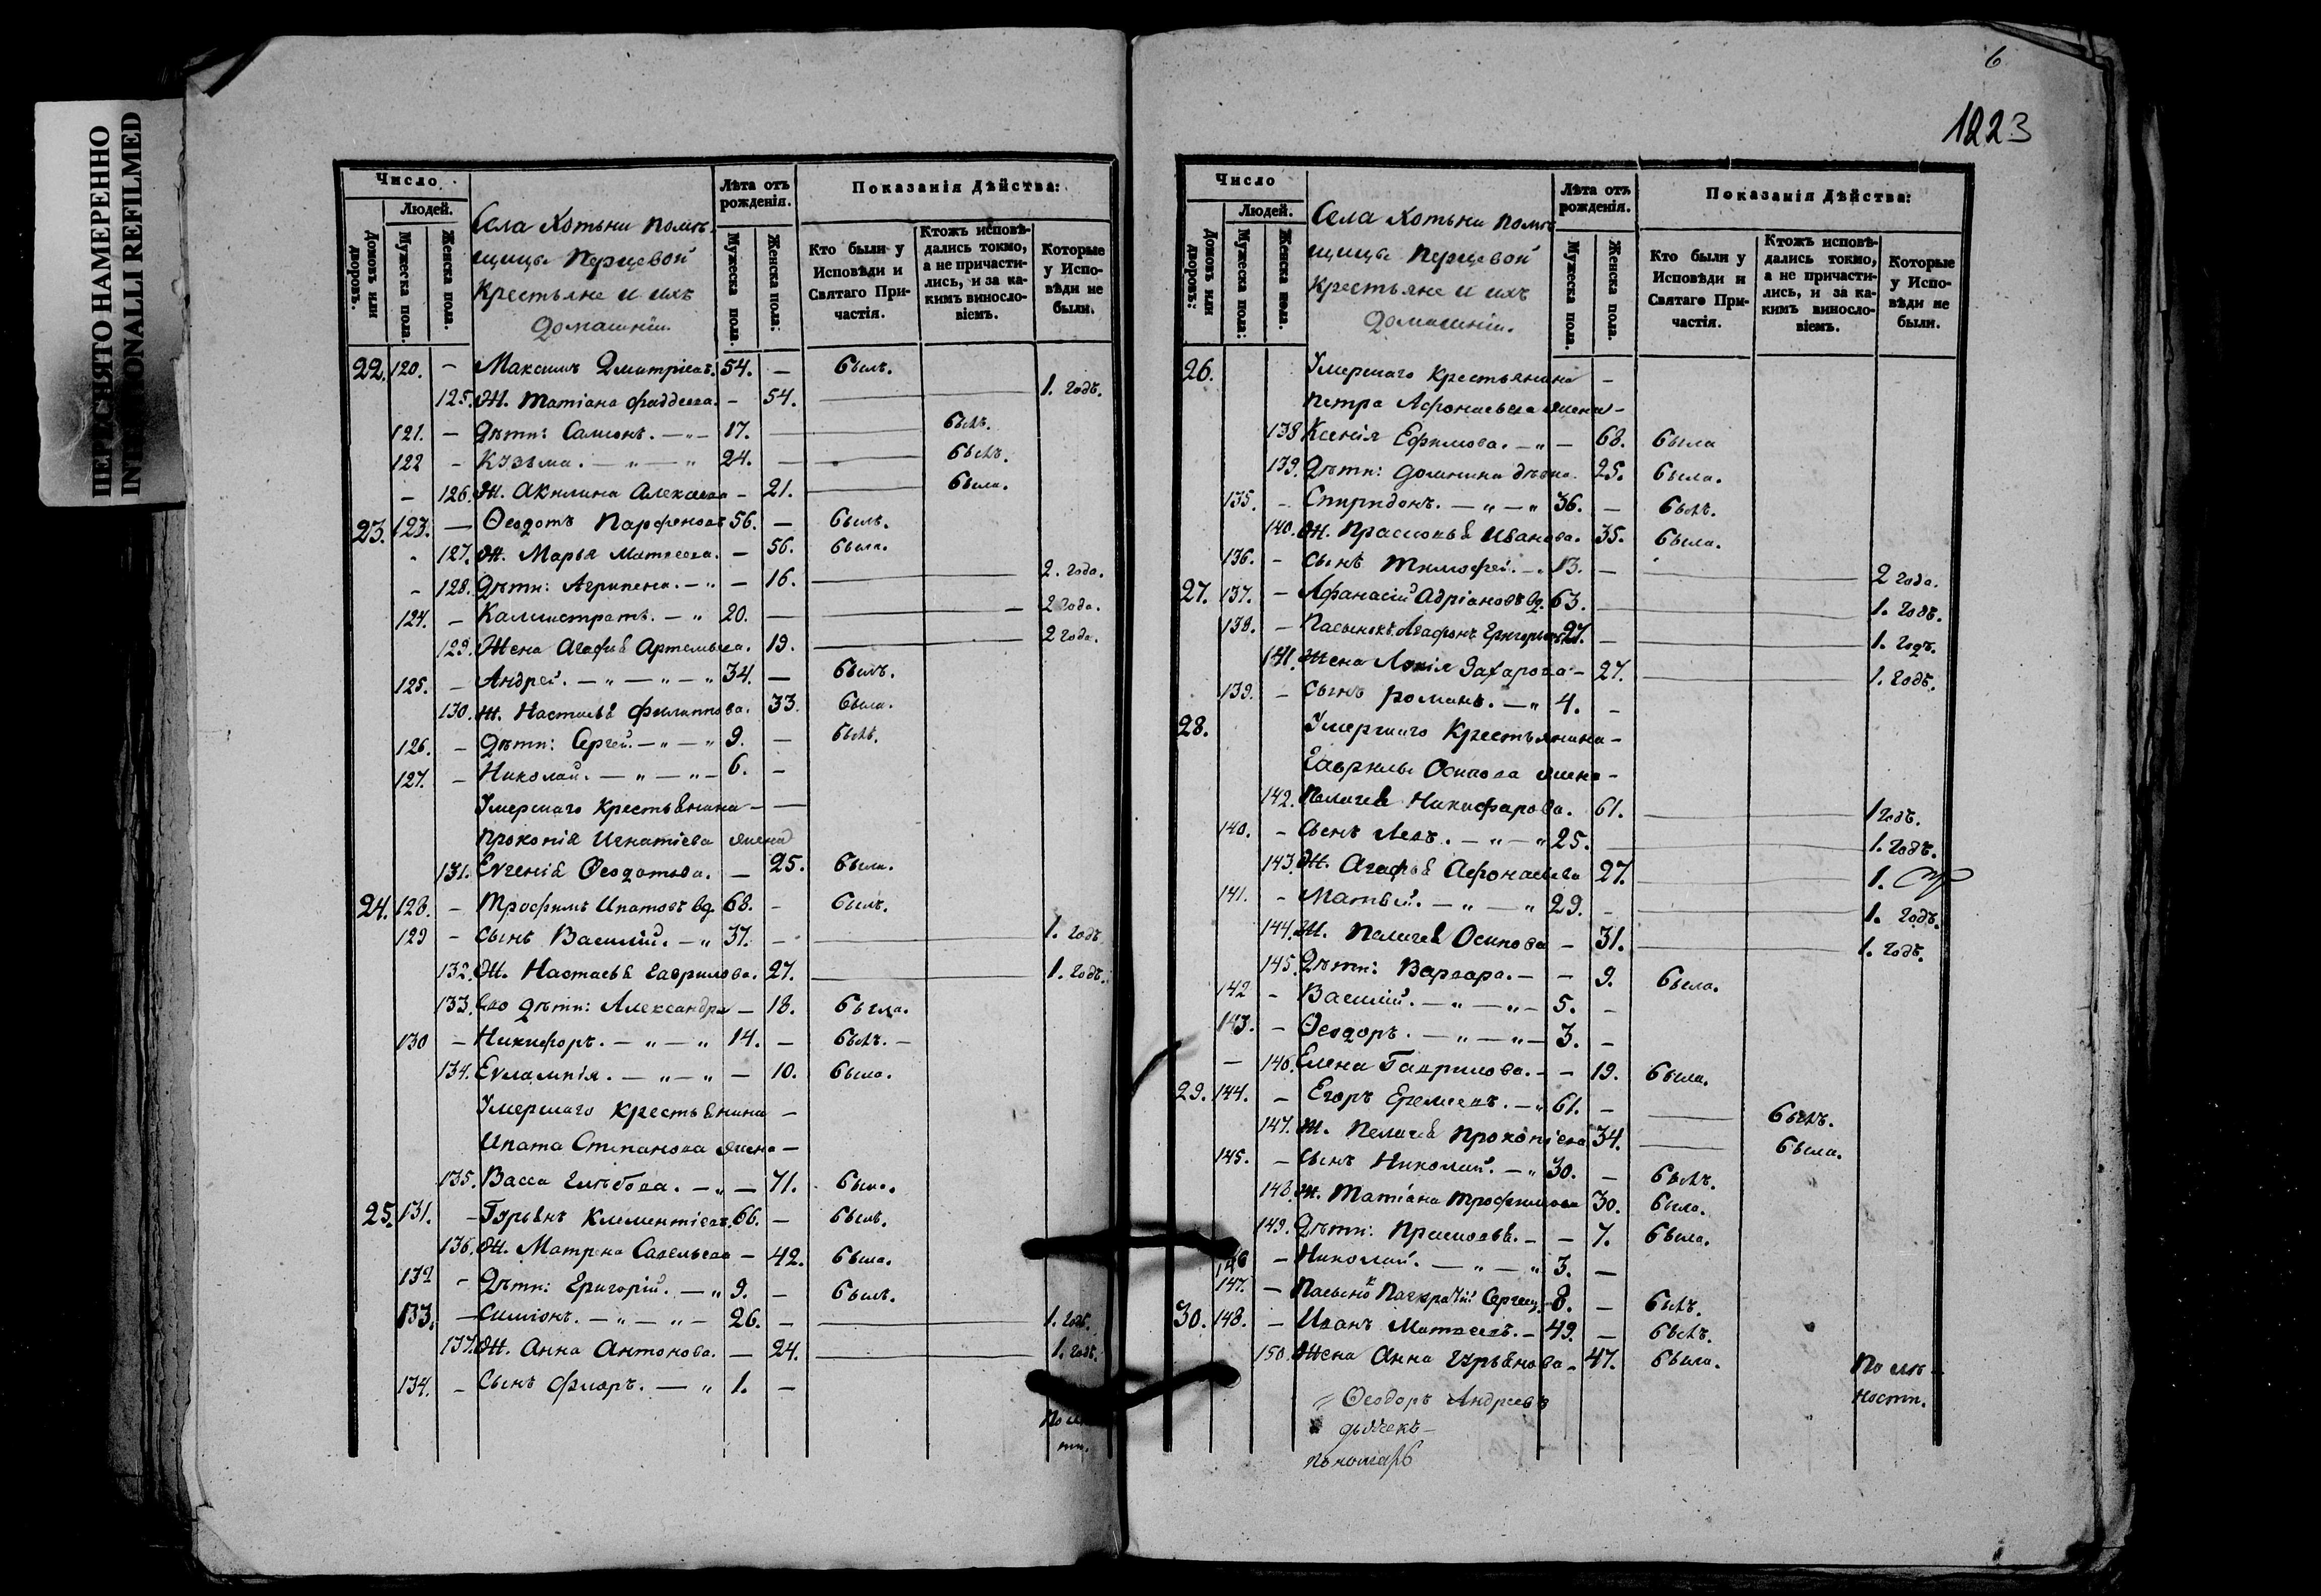 ПЕРЕСНЯТО НАМЕРЕННО
INTENTIONALLI REFILMED
Число
Людей.
Домовъ или дворовъ.
Мужеска пола.
Женска пола.
Села Хотыни помѣ-
щицы Перцевой
Крестьяне и ихъ
домашніи.
Лѣта отъ рожденія.
Мужеска пола.
Женска пола:
Показанія Дѣйства:
Кто были у Исповѣди и Святаго При-частія.
Ктожъ исповѣ-дались токмо, а не причасти-лись, и за ка-кимъ виносло-віемъ.
Которые у Испо-вѣди не были.
22. 120. – Максимъ Дмитріевъ. 54. – былъ.
125. Ж. Татіана Фаддеева. – 54. 1. годъ.
121. – Дѣти: Самсонъ. – „ – 17. былъ.
122 – Козьма. – „ – „ 24. – былъ.
– 126. Ж. Акилина Алексеева – 21. была.
23. 123. – Ѳеодотъ Парфеновъ 56. – былъ.
127. Ж. Марья Матвеева. – 56. была.
– 128. Дѣти: Агрипена. – „ – 16. 2. года.
124. – Каллистратъ. – „ 20. – 2 года.
129. Жена Агафья Артемьева. 19. 2 года.
125. – Андрей. – „ – „ – „ 34. – былъ.
130. Ж. Настасья Филиппова. 33. была.
126. – Дѣти: Сергей. – „ – „ 9. – былъ.
127. – Николай. – „ – „ – 6. –
Умершаго крестьянина – –
Прокопія Игнатіева жена
131. Евгенія Ѳеодотова. – 25. была.
24. 128. – Трофимъ Ипатовъ вд. 68. – былъ.
129 – Сынъ Василій. – „ 37. – 1. годъ
132. Ж. Настасья Гаврилова. 27. 1. годъ.
133. Его дѣти: Александра – 18. была.
130 – Никифоръ. – „ – „ 14. – былъ. –
134. Евлампія. – „ – „ – 10. была.
Умершаго крестьянина –
Ипата Степанова жена –
135. Васса Глѣбова. – „ – 71. была.
25. 131. – Гурьянъ Климентіевъ. 66. – былъ.
136. Ж. Матрена Савельева – 42. была.
132 – Дѣти: Григорій. – „ 9. – былъ.
133. – Симіонъ. – „ – „ – 26. – 1. годъ.
137. Ж. Анна Антонова. – 24. 1. годъ.
134. – Сынъ Флоръ. – „ 1. –
6
1223
Число
Людей.
Домовъ или дворовъ:
Мужеска пола:
Женска пола.
Села Хотыни помѣ
щицы Перцевой
Крестьяне и ихъ
домашніи.
Лѣта отъ рожденія.
Мужеска пола.
Женска пола.
Показанія Дѣйства:
Кто были у Исповѣди и Святаго При-частія.
Ктожъ исповѣ-дались токмо, а не причасти-лись, и за ка-кимъ виносло-віемъ.
Которые у Испо-вѣди не были.
26. Умершаго крестьянина –
Петра Афонасьева жена –
138 Ксенія Ефимова. – „ – 68. была
139. Дѣти: Домника дѣвка. 25. была.
135. – Спиридонъ. – „ – „ 36. – былъ.
140. Ж. Прасковья Иванова. 35. была.
136. – Сынъ Тимофей. – „ 13. – 2 года.
27. 137. – Афанасій Адріановъ вд. 63. – 1. годъ.
138. – Пасынокъ Агафонъ Григорьевъ 27. – 1. годъ.
141. Жена Лукія Захарова – 27. 1. годъ.
139. – Сынъ Романъ. – „ 4. –
28. Умершаго Крестьянина –
Гаврилы Осипова жена –
142. Палагея Никифарова. 61. 1 годъ.
140. – Сынъ Левъ. – „ – „ 25. 1. годъ.
143. Ж. Агафья Афонасьева 27. 1.
141. – Матвей. – „ – „ 29. – 1. годъ.
144. Ж. Палагея Осипова – 31. 1. годъ.
145. Дѣти: Варвара. – – 9. была.
142 – Василій. – „ – „ – 5. –
143. – Ѳеодоръ. – „ – „ – 3. –
– 146. Елена Гаврилова. – – 19. была.
29. 144. – Егоръ Еремеевъ. – „ 61. – былъ.
147. Ж. Пелагея Прокопіева 34. была.
145. – Сынъ Николай. – „ 30. – былъ.
148. Ж. Татіана Трофимова 30. была.
149. Дѣти: Прасковья. – – 7. была.
146 – Николай. – „ – „ 3. –
147. – Пасынокъ Панкратій Сергеев. 8. – былъ.
30. 148. – Иванъ Матвеевъ. – 49. – былъ.
150. Жена Анна Гурьянова – 47. была.
Ѳеодоръ Андреевъ
дьячекъ –
пономарь